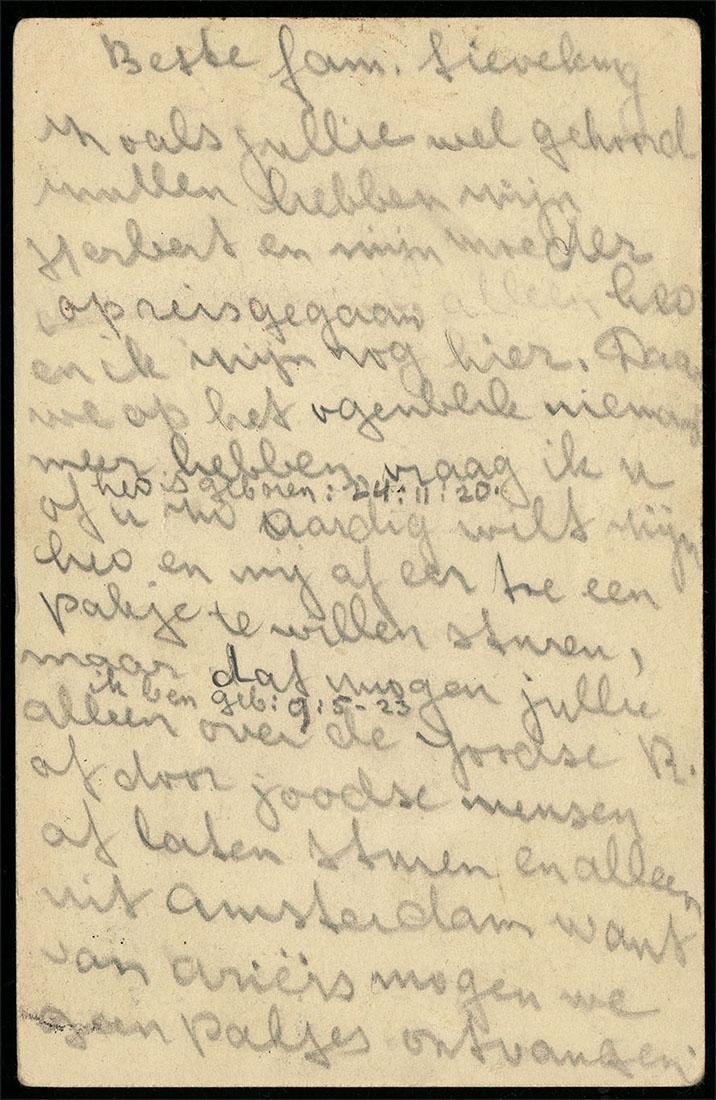 Beste fam. Sieveking
Zoals jullie wel gehoord
zullen hebben zijn
Herbert en mijn moeder
op reis gegaan alleen Leo
en ik zijn nog hier. Daar
we op het ogenblik niemand
meer hebben, vraag ik u
Leo is geboren: 24:11:20.
of u zo aardig wilt zijn
Leo en mij af en toe een
pakje te willen sturen,
maar dat mogen jullie
ik ben geb: 9:5-23
alleen over de Joodse R.
of door joodse mensen
af laten sturen en alleen
uit Amsterdam want
van ariërs mogen we
geen pakjes ontvangen